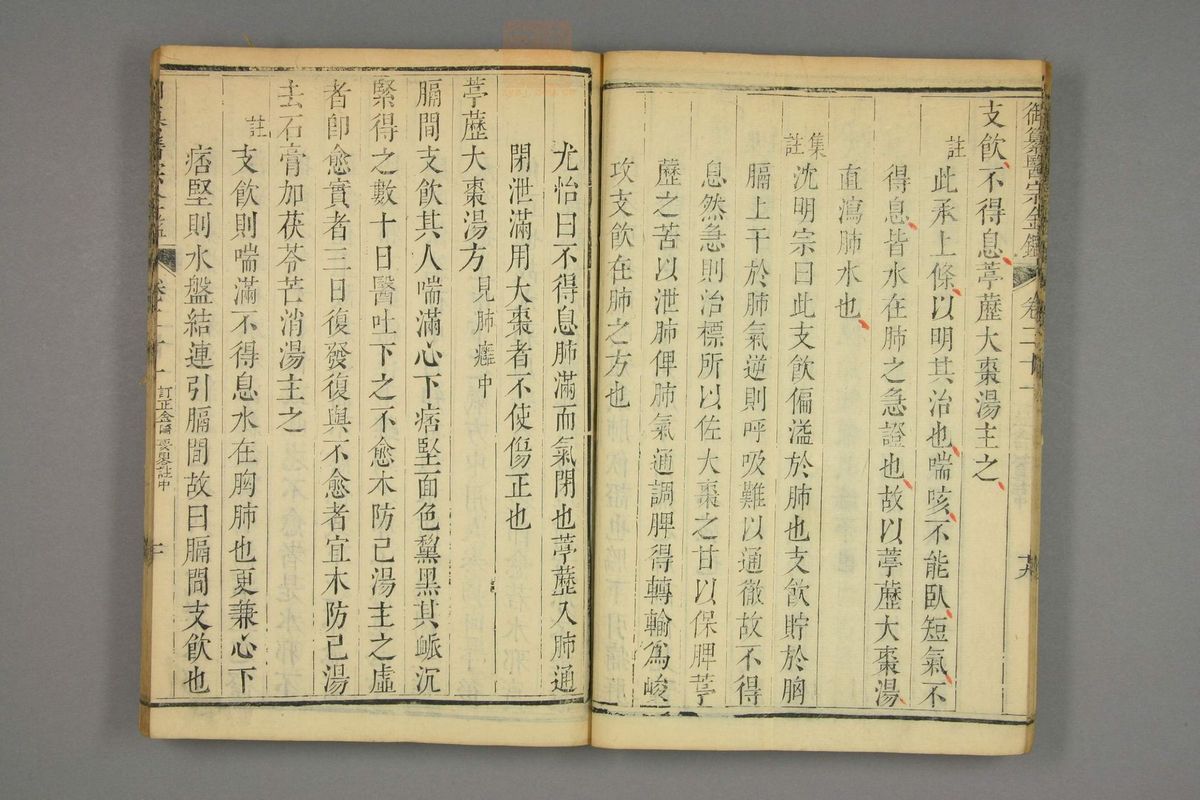 御纂醫宗金鑑 卷二十一 十九
支飲不得息葶藶大棗湯主之
註 此承上條以明其治也喘咳不能臥短氣不
得息皆水在肺之急證也故以葶藶大棗湯
直瀉肺水也
集註 沈明宗曰此支飲偏溢於肺也支飲貯於胸
膈上干於肺氣逆則呼吸難以通徹故不得
息然急則治標所以佐大棗之甘以保脾葶
藶之苦以泄肺俾肺氣通調脾得轉輸為峻
攻支飲在肺之方也
尤怡曰不得息肺滿而氣閉也葶藶入肺通
閉泄滿用大棗者不使傷正也
葶藶大棗湯方 見肺癰中
膈間支飲其人喘滿心下痞堅面色黧黑其脈沉
緊得之數十日醫吐下之不愈木防己湯主之虛
者卽愈實者三日復發復與不愈者宜木防己湯
去石膏加茯苓芒消湯主之
註 支飲則喘滿不得息水在胸肺也更兼心下
痞堅則水盤結連引膈間故曰膈間支飲也
訂正金匱要畧註中